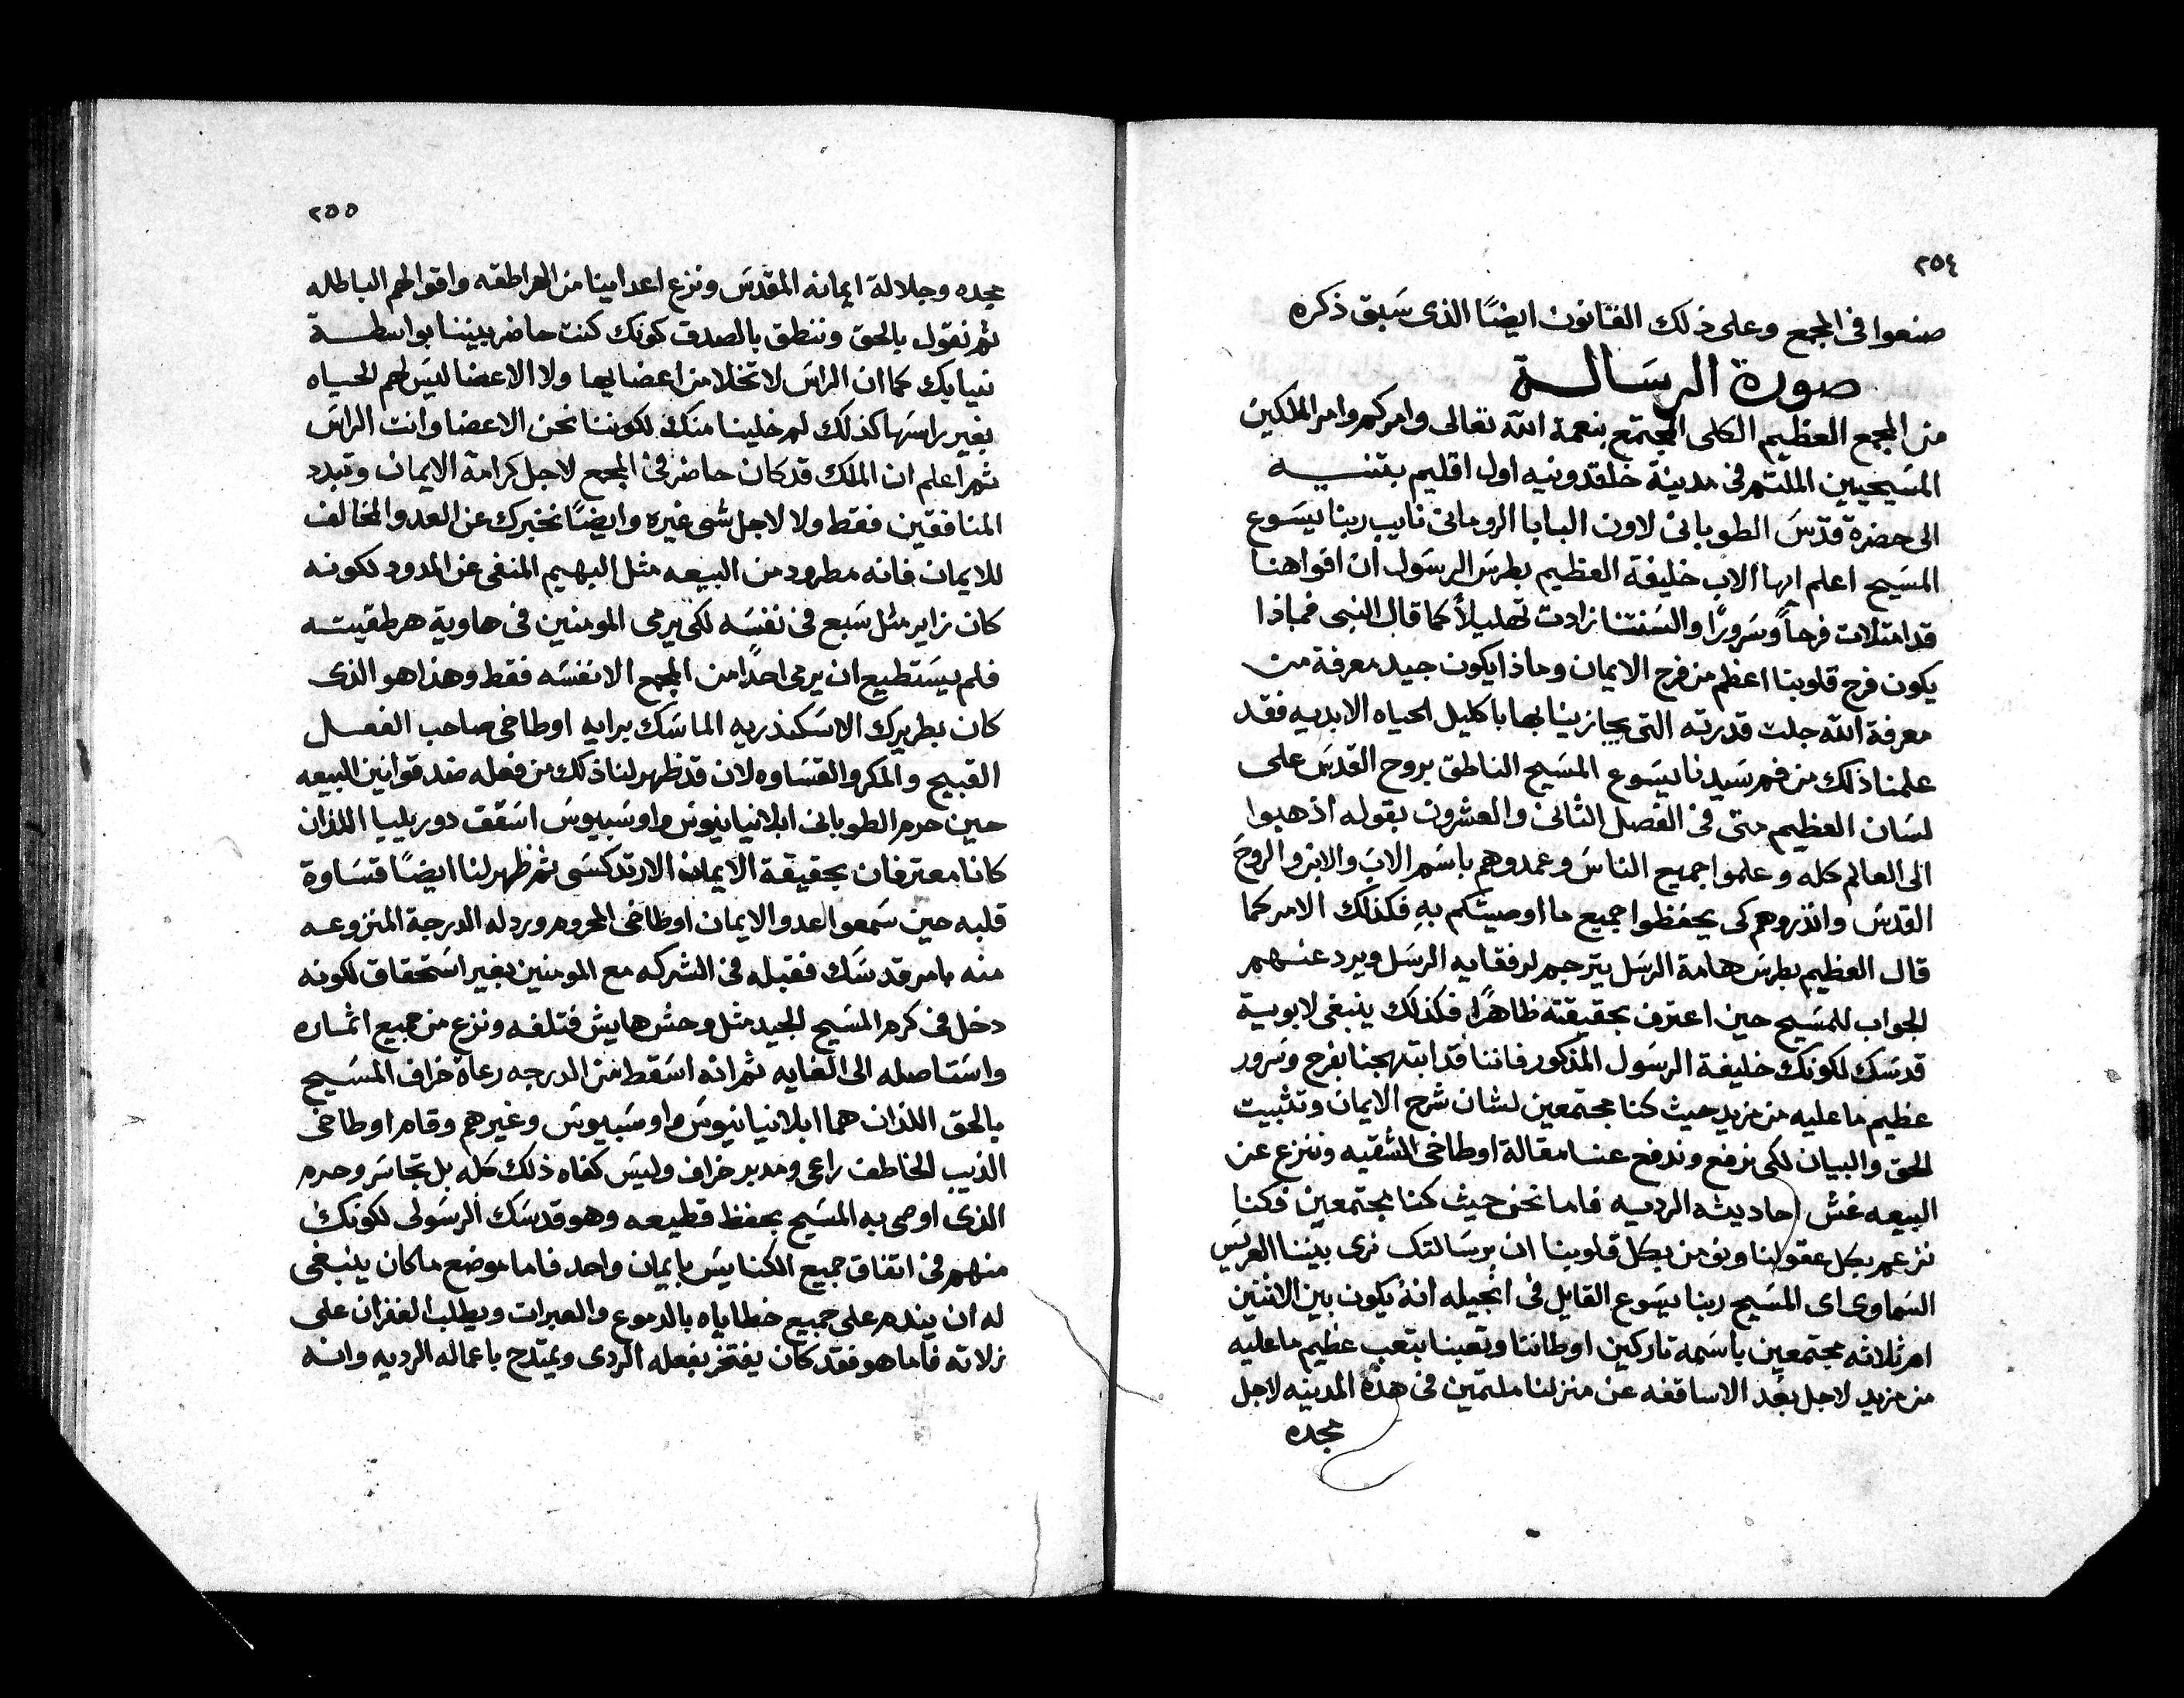 ٢٥٤
صنعوا فى المجمع وعلى ذلك القانون ايضًا الذى سَبق ذكره
صورة الرسَالة
من المجمع العظيم الكلى المجتمع بنعمة الله تعالى وامركم وامر الملكين
المسَيحيين الملتم فى مدينة خلقدونيه اول اقليم بتنيه
الى حضرة قدّسَ الطوبانى لاون البابا الرومانى نايب ربنا يسَوع
المسَيح اعلم ايها الاب خليفة العظيم بطرسَ الرسَول ان افواهنا
قد امتلات فرحاً وسَرورًا والسَنتنا زادت تهليلاً كما قال النبى فماذا
يكون فرح قلوبنا اعظم من فرح الايمان وماذا يكون جيد معرفة من
معرفة الله جلت قدرته التى يجازينا بها باكليل الحياه الابديه فقد
علمنا ذلك من فم سَيدنا يسَوع المسَيح الناطق بروح القدسَ على
لسَان العظيم متى فى الفصل الثانى والعشرون بقوله اذهبوا
الى العالم كله وعلموا جميع الناسَ وعمدوهم باسَم الابَ والابن والروحَ
القدسَ وانذروهم كى يحفظوا جميع ما اوصيتكم بهِ فكذلك الامر كما
قال العظيم بطرسَ هامة الرسَل يترجم لرفقايه الرسَل ويرد عنهم
الجواب للمسَيح حين اعترف بحقيقته ظاهرًا فكذلك ينبغى لابوبية
قدسَك لكونك خليفة الرسَول المذكور فاننا قد ابتهجنا بفرح وسَرور
عظيم ما عليه من مزيد حيث كنا مجتمعين لشان شرح الايمان وتثبيت
الحق والبيان لكى نرفع وندفع عنا مقالة اوطاخى الشقيه وننزع عن
البيعه غش احاديثه الرديه فاما نحن حيث كنا مجتمعين فكنا
نزعم بكل عقولنا ونومن بكل قلوبنا ان برسَالتك نرى بيننا العريسَ
السَماوى اى المسَيح ربنا يسَوع القايل فى انجيله انهُ يكون بين الاثنين
ام ثلاثه مجتمعين باسَمه تاركين اوطاننا وتعبنا بتعب عظيم ما عليه
من مزيد لاجل بعد الاساقفه عن منزلنا ملتمين فى هذه المدينه لاجل
مجده
٢٥٥
مجده وجلالة ايمانه المقدسَ ونزع اعداينا من الهراطقه واقوالهم الباطله
ثم نقول بالحق وننطق بالصدق كونك كنت حاضر بيننا بواسطة
نيابك كما ان الراسَ لا تخلا من اعضايها ولا الاعضا ليسَ لهم الحياه
بغير راسَها كذلك لم خلينا منك لكوننا نحن الاعضا وانت الراسَ
ثم اعلم ان الملك قد كان حاضر فى المجمع لاجل كرامة الايمان وتبدد
المنافقين فقط ولا لاجل شى غيره وايضًا نخبرك عن العدو المخالف
للايمان فانه مطرود من البيعه مثل البهيم المنفى عن المدود لكونه
كان زاير مثل سَبع فى نفسَه لكى يرمى المومنين فى هاوية هرطقيته
فلم يسَتطيع ان يرمى احدًا من المجمع الا نفسَه فقط وهذا هو الذى
كان بطريرك الاسَكندريه الماسَك برايه اوطاخى صاحب الفعل
القبيح والمكر والقسَاوه لان قد ظهر لنا ذلك من فعله ضد قوانين البيعه
حين حرم الطوبانى ابلانيانيوسَ واوسَبيوسَ اسَقف دوريليا اللذان
كانا معترفان بحقيقة الايمان الارتدكسَى ثم ظهر لنا ايضًا قسَاوة
قلبه حين سَمعوا عدو الايمان اوطاخى المحروم ورد له الدرجة المنزوعه
منه بامر قدسَك فقبله فى الشركه مع المومنين بغير اسَتحقاق لكونه
دخل فى كرم المسَيح الجيد مثل وحش هايش فتلفه ونزع من جميع اثماره
واسَتاصله الى الغايه ثم انه اسَقط من الدرجه رعاة خراف المسَيح
بالحق اللذان هما ابلانيانيوسَ واوسَبيوسَ وغيرهم وقام اوطاخى
الذيب الخاطف راعى ومدبر خراف وليسَ كفاه ذلك كله بل تجاسَر وحرم
الذى اوصى به المسَيح بحفظ قطيعه وهو قدسَك الرسَولى لكونك
منهم فى اتفاق جميع الكنايسَ بايمان واحد فاما موضع ما كان ينبغى
له ان يندم على جميع خطاياه بالدموع والعبرات ويطلب الغفران على
زلاته فاما هو فقد كان يفتخر بفعله الردى ويمتدح باعماله الرديه وانه